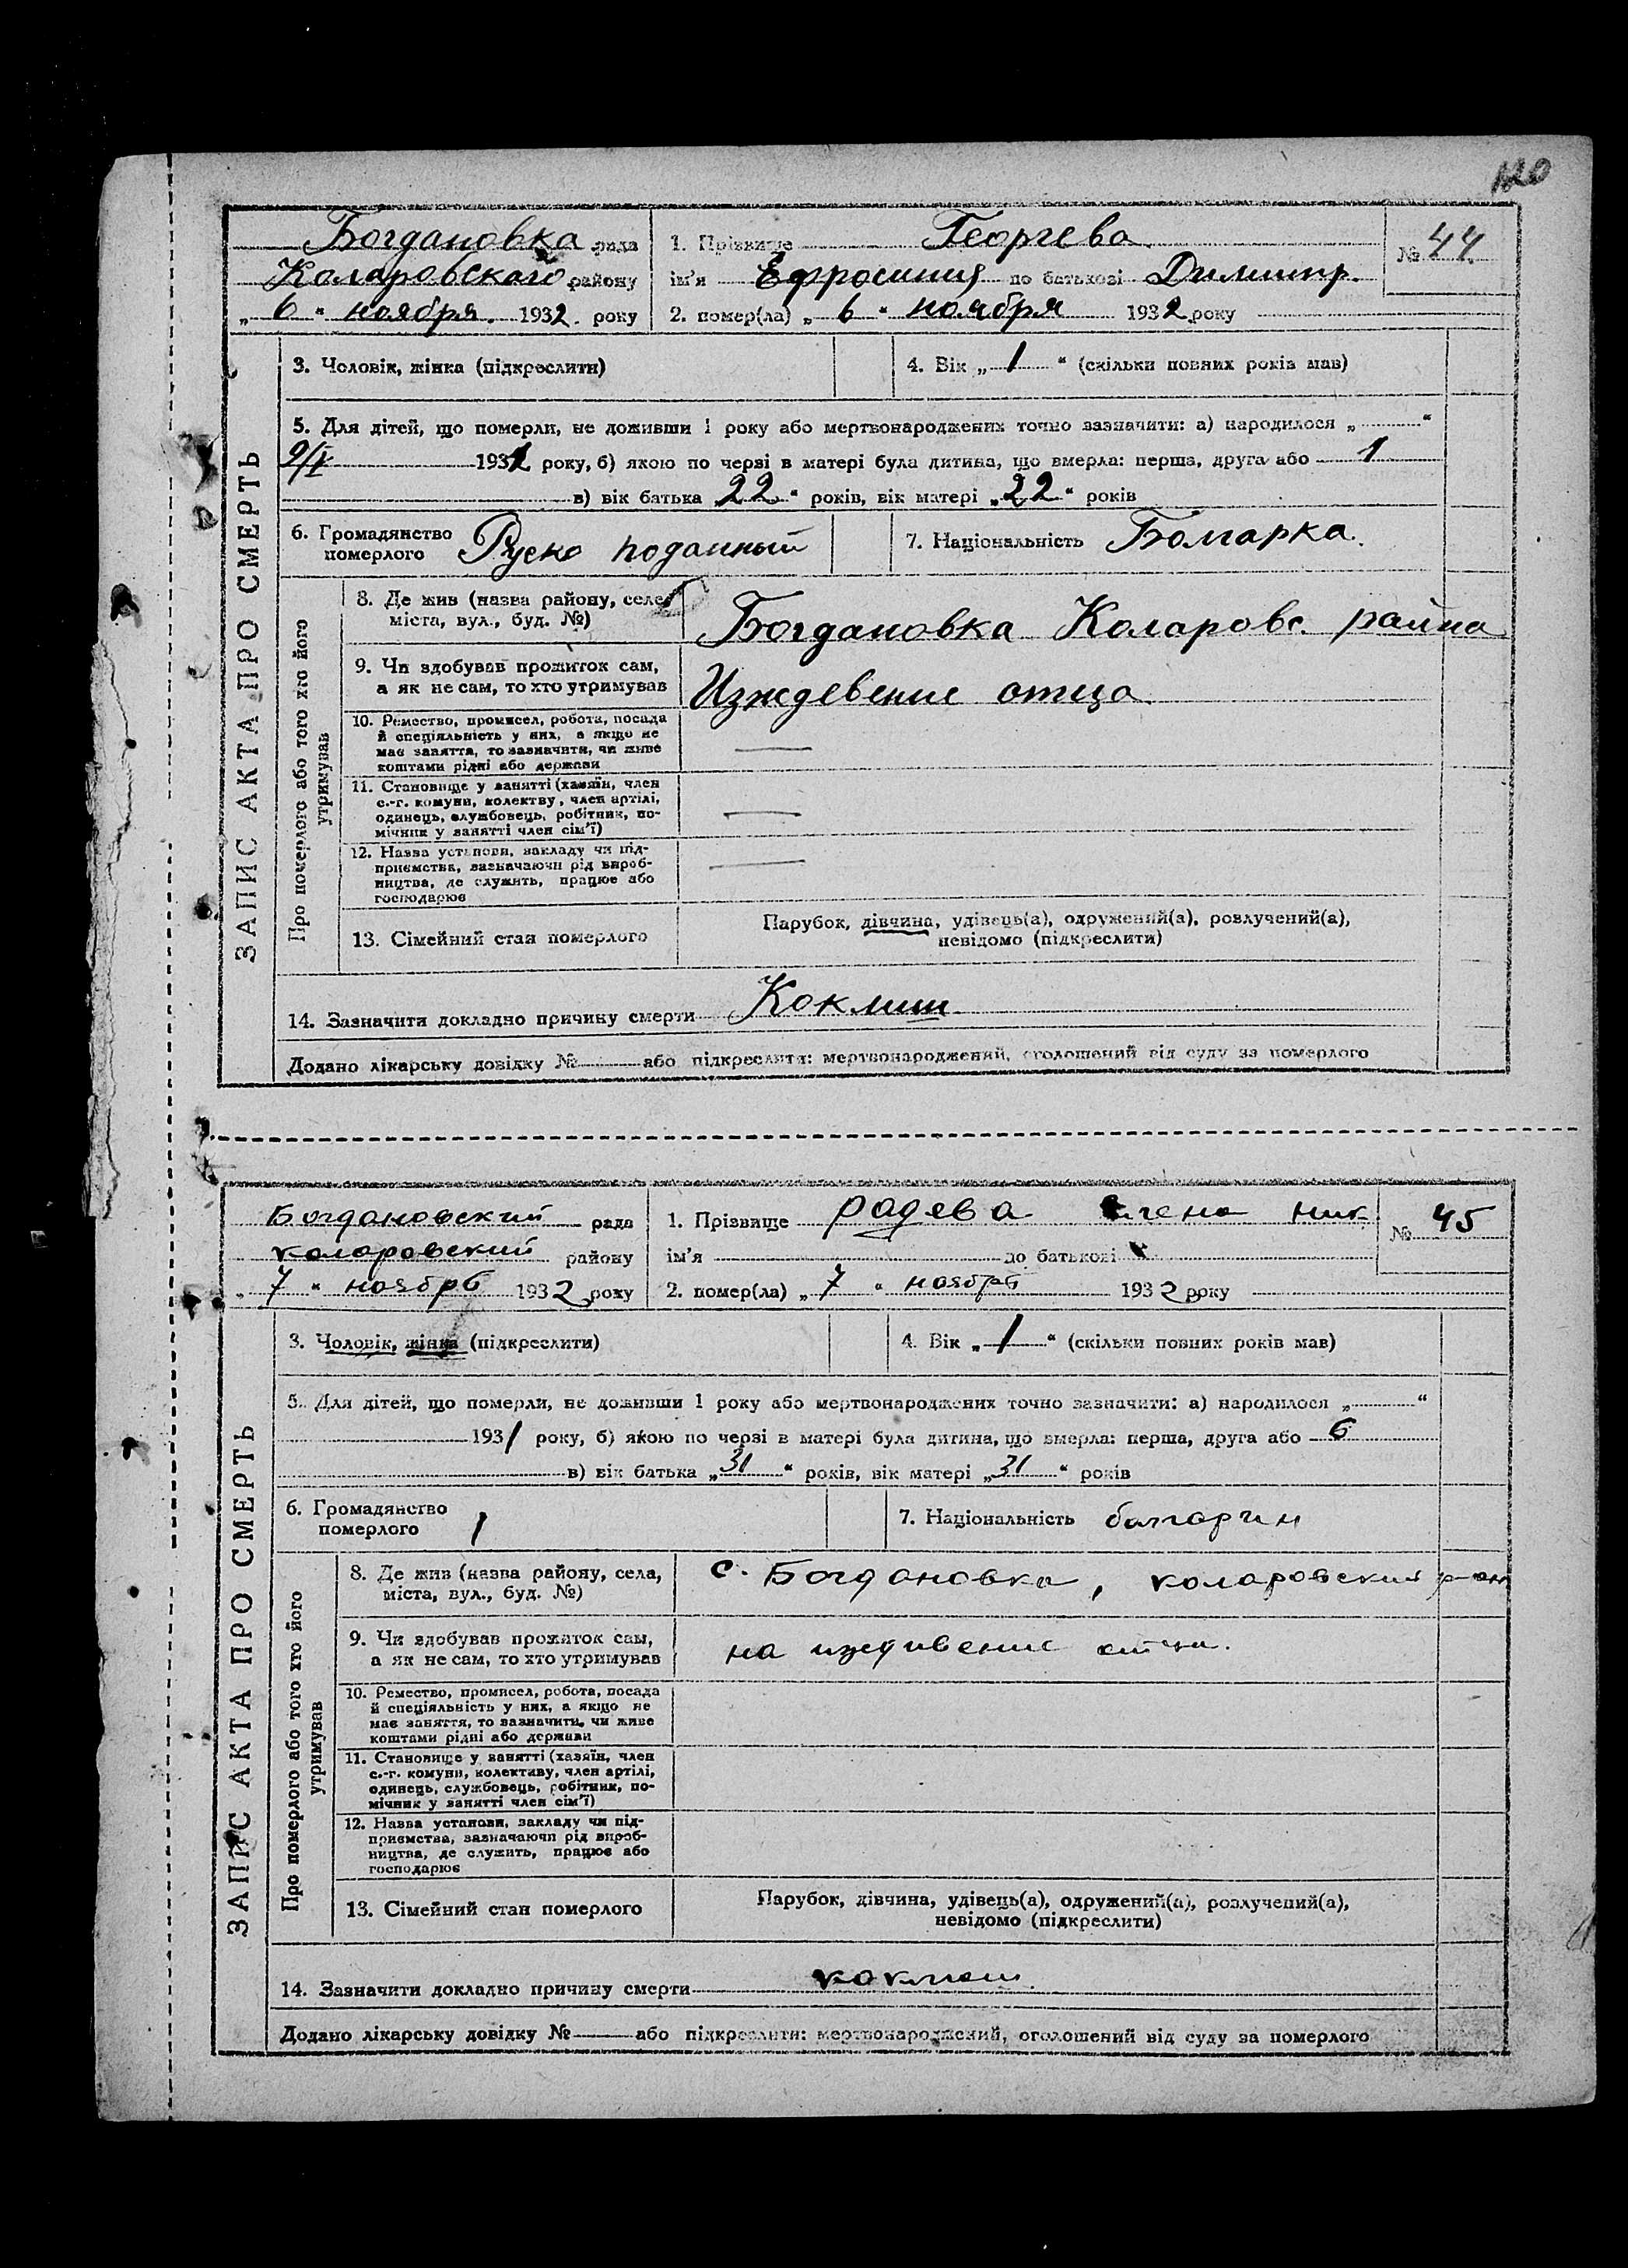 120
Богдановка рада
Коларовского району
„ 6 “ ноября. 1932. року
1. Прізвище Георгева
ім'я Ефросиния по батькові Димитр.
2. помер(ла) „ 6 “ ноября 1932 року
№ 44
ЗАПИС АКТА ПРО СМЕРТЬ
3. Чоловік, жінка (підкреслити)
4. Вік „ 1 “ (скільки повних років мав)
5. Для дітей, що померли, не доживши 1 року або мертвонароджених точно зазначити: а) народилося „ “
193 року, б) якою по черзі в матері була дитина, що вмерла: перша, друга або 1
в) вік батька „22“ років, вік матері „22“ років
6. Громадянство
померлого Руско поданный
7. Національність Болгарка.
Про померлого або того хто його
утримував
8. Де жив (назва району, села
міста, вул., буд. №)
Богдановка Коларовс. райна
9. Чи здобував прожиток сам,
а як не сам, то хто утримував
Изждевение отца
10. Ремество, промисел, робота, посада
й спеціяльність у них, а якщо не
має заняття, то зазначити, чи живе
коштами рідні або держави
11. Становище у занятті (хазяїн, член
с.-г. комуни, колективу, член артілі,
одинець, службовець, робітник, по-
мічник у занятті член сім'ї)
12. Назва установи, закладу чи під-
приємства, зазначаючи рід вироб-
ництва, де служить, працює або
господарює
13. Сімейний стан померлого
Парубок, дівчина, удівець(а), одружений(а), розлучений(а),
невідомо (підкреслити)
14. Зазначити докладно причину смерти Коклиш
Додано лікарську довідку № або підкреслити: мертвонароджений, оголошений від суду за померлого
Богдановский рада
коларовский району
„ 7 “ ноябрь 1932 року
1. Прізвище Радева Елена Ник
ім'я по батькові
2. помер(ла) „ 7 “ ноября 1932 року
№ 45
ЗАПИС АКТА ПРО СМЕРТЬ
3. Чоловік, жінка (підкреслити)
4. Вік „ 1 “ (скільки повних років мав)
5. Для дітей, що померли, не доживши 1 року або мертвонароджених точно зазначити: а) народилося „ “
1931 року, б) якою по черзі в матері була дитина, що вмерла: перша, друга або 6
в) вік батька „31“ років, вік матері „31“ років
6. Громадянство
померлого
7. Національність болгарин
Про померлого або того хто його
утримував
8. Де жив (назва району, села,
міста, вул., буд. №)
с. Богдановка, коларовский р-он
9. Чи здобував прожиток сам,
а як не сам, то хто утримував
на иждивение отца.
10. Ремество, промисел, робота, посада
й спеціяльність у них, а якщо не
має заняття, то зазначити, чи живе
коштами рідні або держави
11. Становище у занятті (хазяїн, член
с.-г. комуни, колективу, член артілі,
одинець, службовець, робітник, по-
мічник у занятті член сім'ї)
12. Назва установи, закладу чи під-
приємства, зазначаючи рід вироб-
ництва, де служить, працює або
господарює
13. Сімейний стан померлого
Парубок, дівчина, удівець(а), одружений(а), розлучений(а),
невідомо (підкреслити)
14. Зазначити докладно причину смерти коклюш
Додано лікарську довідку № або підкреслити: мертвонароджений, оголошений від суду за померлого